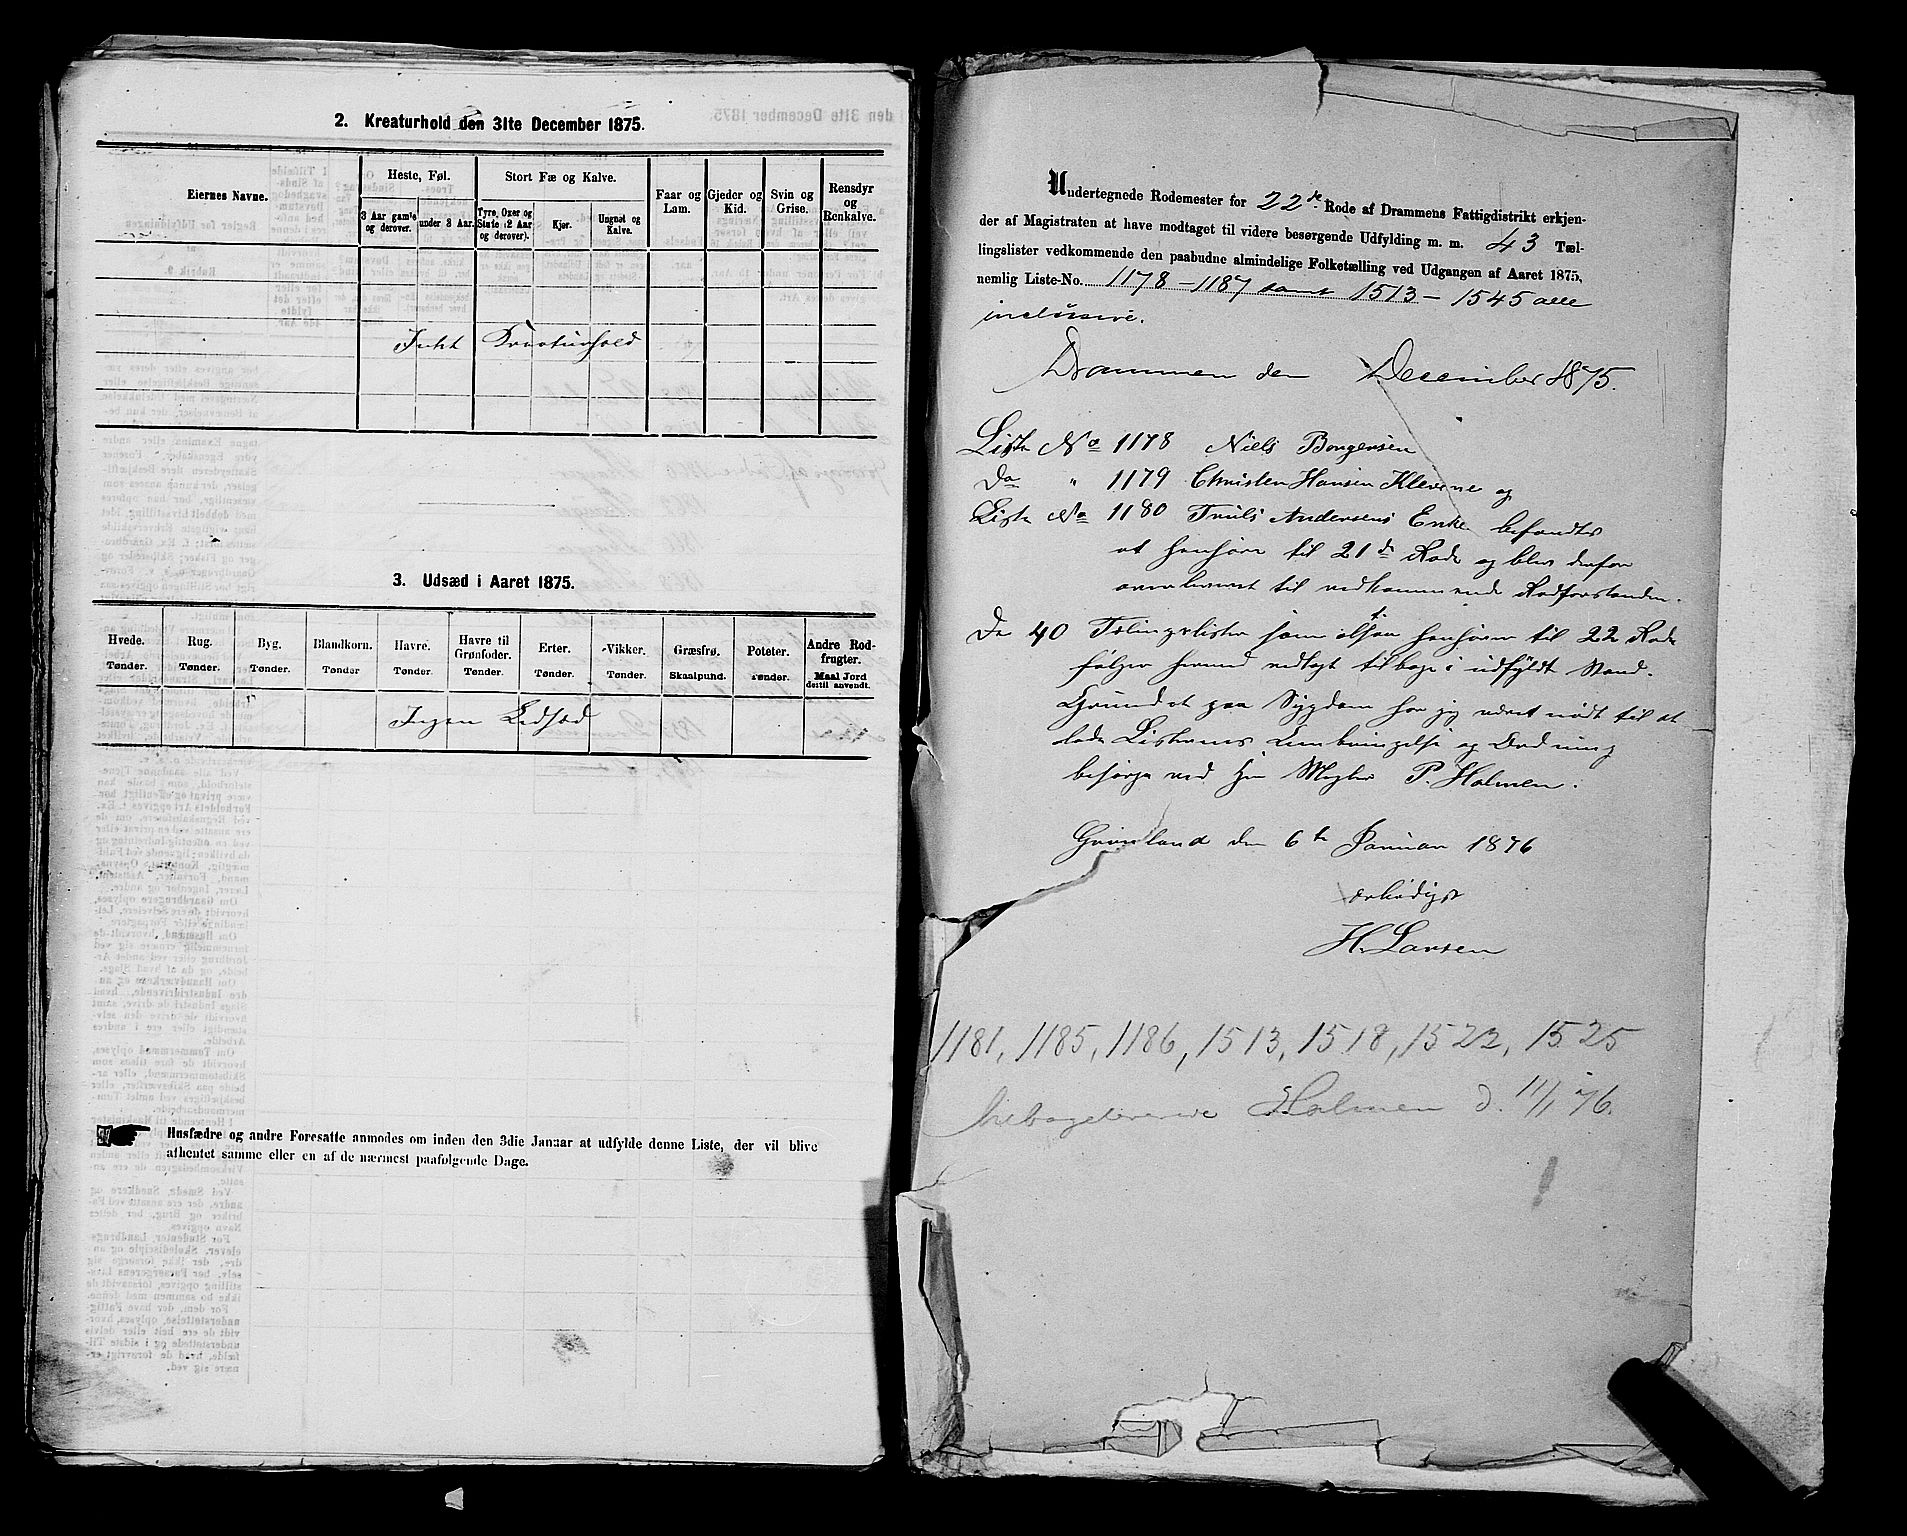 2. Kreaturhold den 31te December 1875.
Eiernes Navne.
Heste, Føl.
Stort Fæ og Kalve.
Faar og Lam.
Gjeder og Kid.
Svin og Grise.
Rensdyr og Renkalve.
3 Aar gamle og derover.
under 3 Aar.
Tyre, Oxer og Stute (2 Aar og derover).
Kjør.
Ungnøt og Kalve.
Intet Kreaturhold
3. Udsæd i Aaret 1875.
Hvede. Tønder.
Rug. Tønder.
Byg. Tønder.
Blandkorn. Tønder
Havre. Tønder.
Havre til Grønfoder. Tønder.
Erter. Tønder.
Vikker. Tønder.
Græsfrø. Skaalpund.
Poteter. Tønder.
Andre Rodfrugter. Maal Jord dertil anvendt.
Ingen Udsæd
Husfædre og andre Foresatte anmodes om inden den 3die Januar at udfylde denne Liste, der vil blive
afhentet samme eller en af de nærmest paafølgende Dage.
Undertegnede Rodemester for 22de Rode af Drammens Fattigdistrikt erkjen-
der af Magistraten at have modtaget til videre besørgende Udfylding m. m. 43 Tæl-
lingslister vedkommende den paabudne almindelige Folketælling ved Udgangen af Aaret 1875,
nemlig Liste-No. 1178 – 1187 samt 1513 – 1545 alle
inclusive.
Drammen den December 1875.
Liste No 1178 Niels Borgersen
Do " 1179 Christen Hansen Klevene og
Liste No 1180 Truls Andersens Enke befandtes
at henhøre til 21de Rode og blev derfor
overleveret til vedkommende Rodforstander.
De 40 Tellingslister som altsaa henhører til 22 Rode
følger herved vedlagt tilbage i udfyldt Stand.
Grundet paa Sygdom har jeg været nødt til at
lade Listernes Ombringelse og Ordning
besørge ved Hr Megler P. Holmen.
Grønland den 6te Januar 1876
ærbødigst
H. Larsen
1181, 1185, 1186, 1513, 1518, 1522, 1525
tilbageleverede Holmen d. 11/1 76.